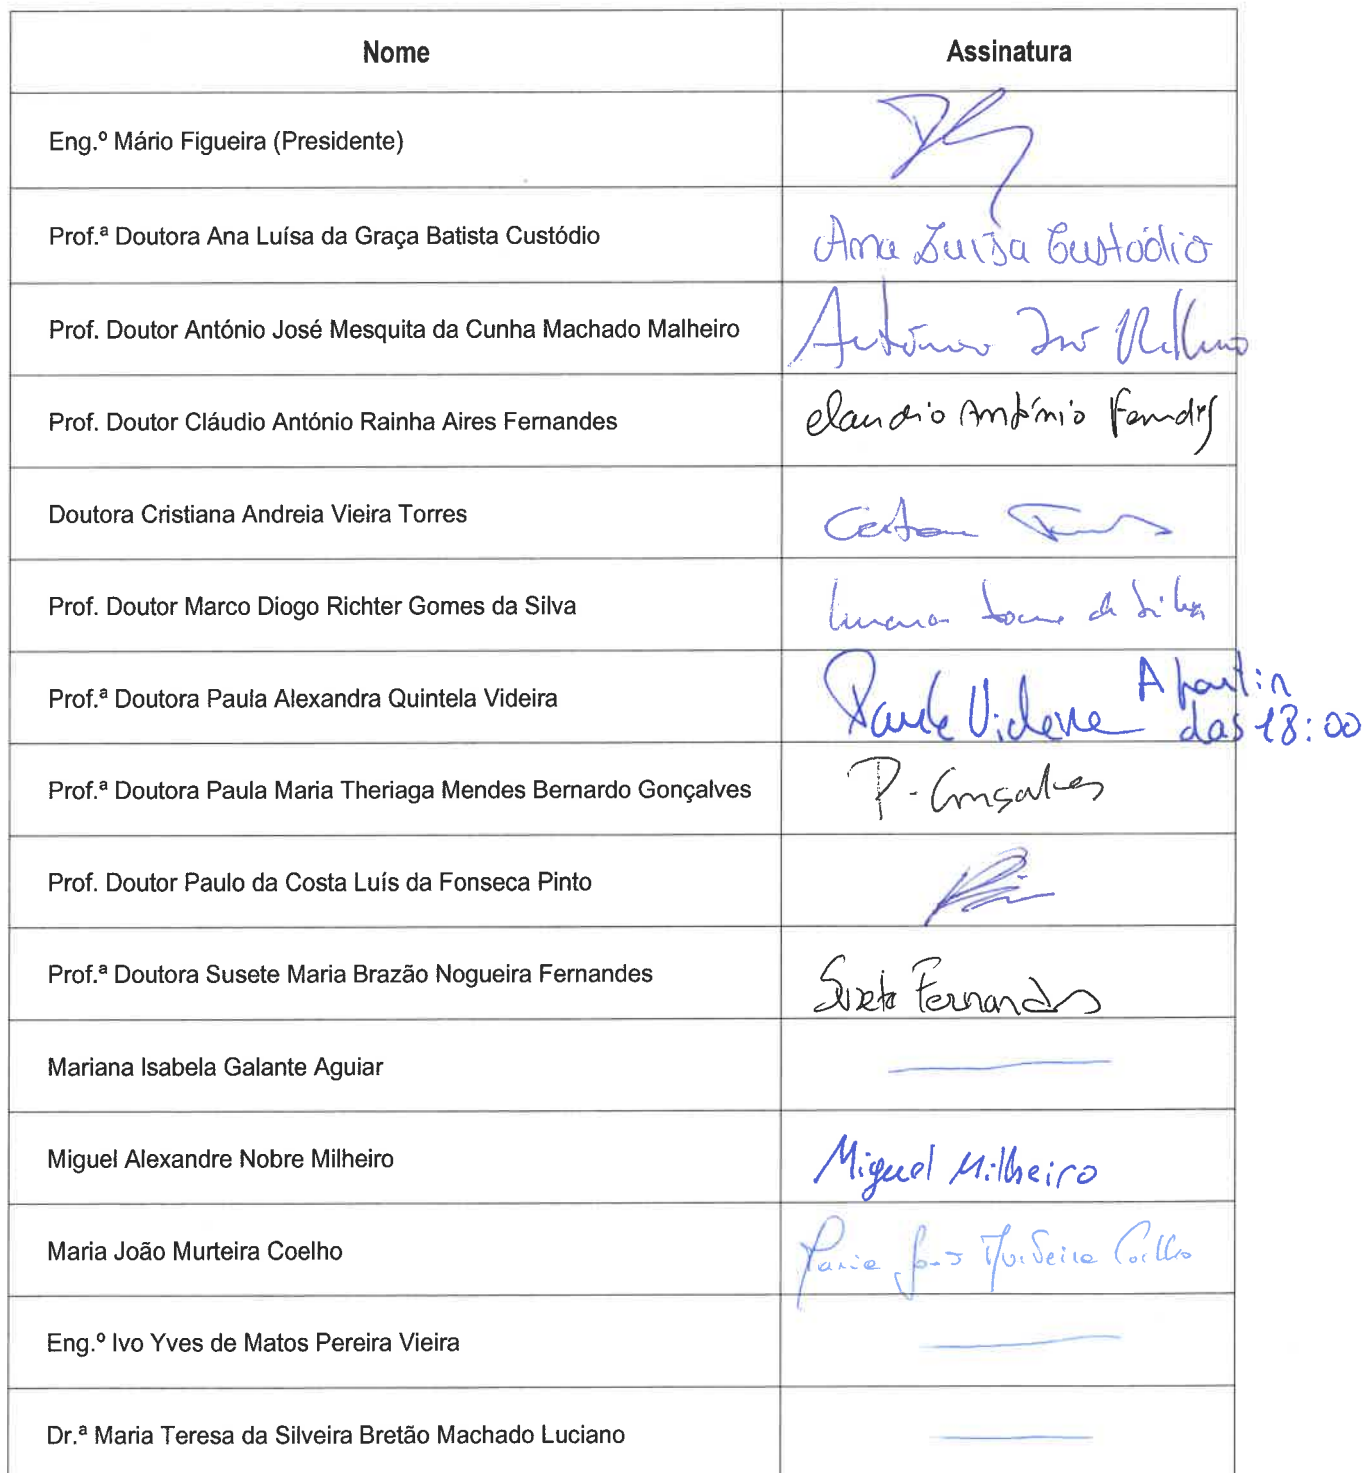 Nome Assinatura
Eng.º Mário Figueira (Presidente)
Prof.ª Doutora Ana Luísa da Graça Batista Custódio Ana Luísa Custódio
Prof. Doutor António José Mesquita da Cunha Machado Malheiro António José
Prof. Doutor Cláudio António Rainha Aires Fernandes Claudio António
Doutora Cristiana Andreia Vieira Torres
Prof. Doutor Marco Diogo Richter Gomes da Silva da Silva
Prof.ª Doutora Paula Alexandra Quintela Videira Paula Videira A partir
das 18:00
Prof.ª Doutora Paula Maria Theriaga Mendes Bernardo Gonçalves P. Gonçalves
Prof. Doutor Paulo da Costa Luís da Fonseca Pinto
Prof.ª Doutora Susete Maria Brazão Nogueira Fernandes Susete Fernandes
Mariana Isabela Galante Aguiar
Miguel Alexandre Nobre Milheiro Miguel Milheiro
Maria João Murteira Coelho Maria João Murteira Coelho
Eng.º Ivo Yves de Matos Pereira Vieira
Dr.ª Maria Teresa da Silveira Bretão Machado Luciano